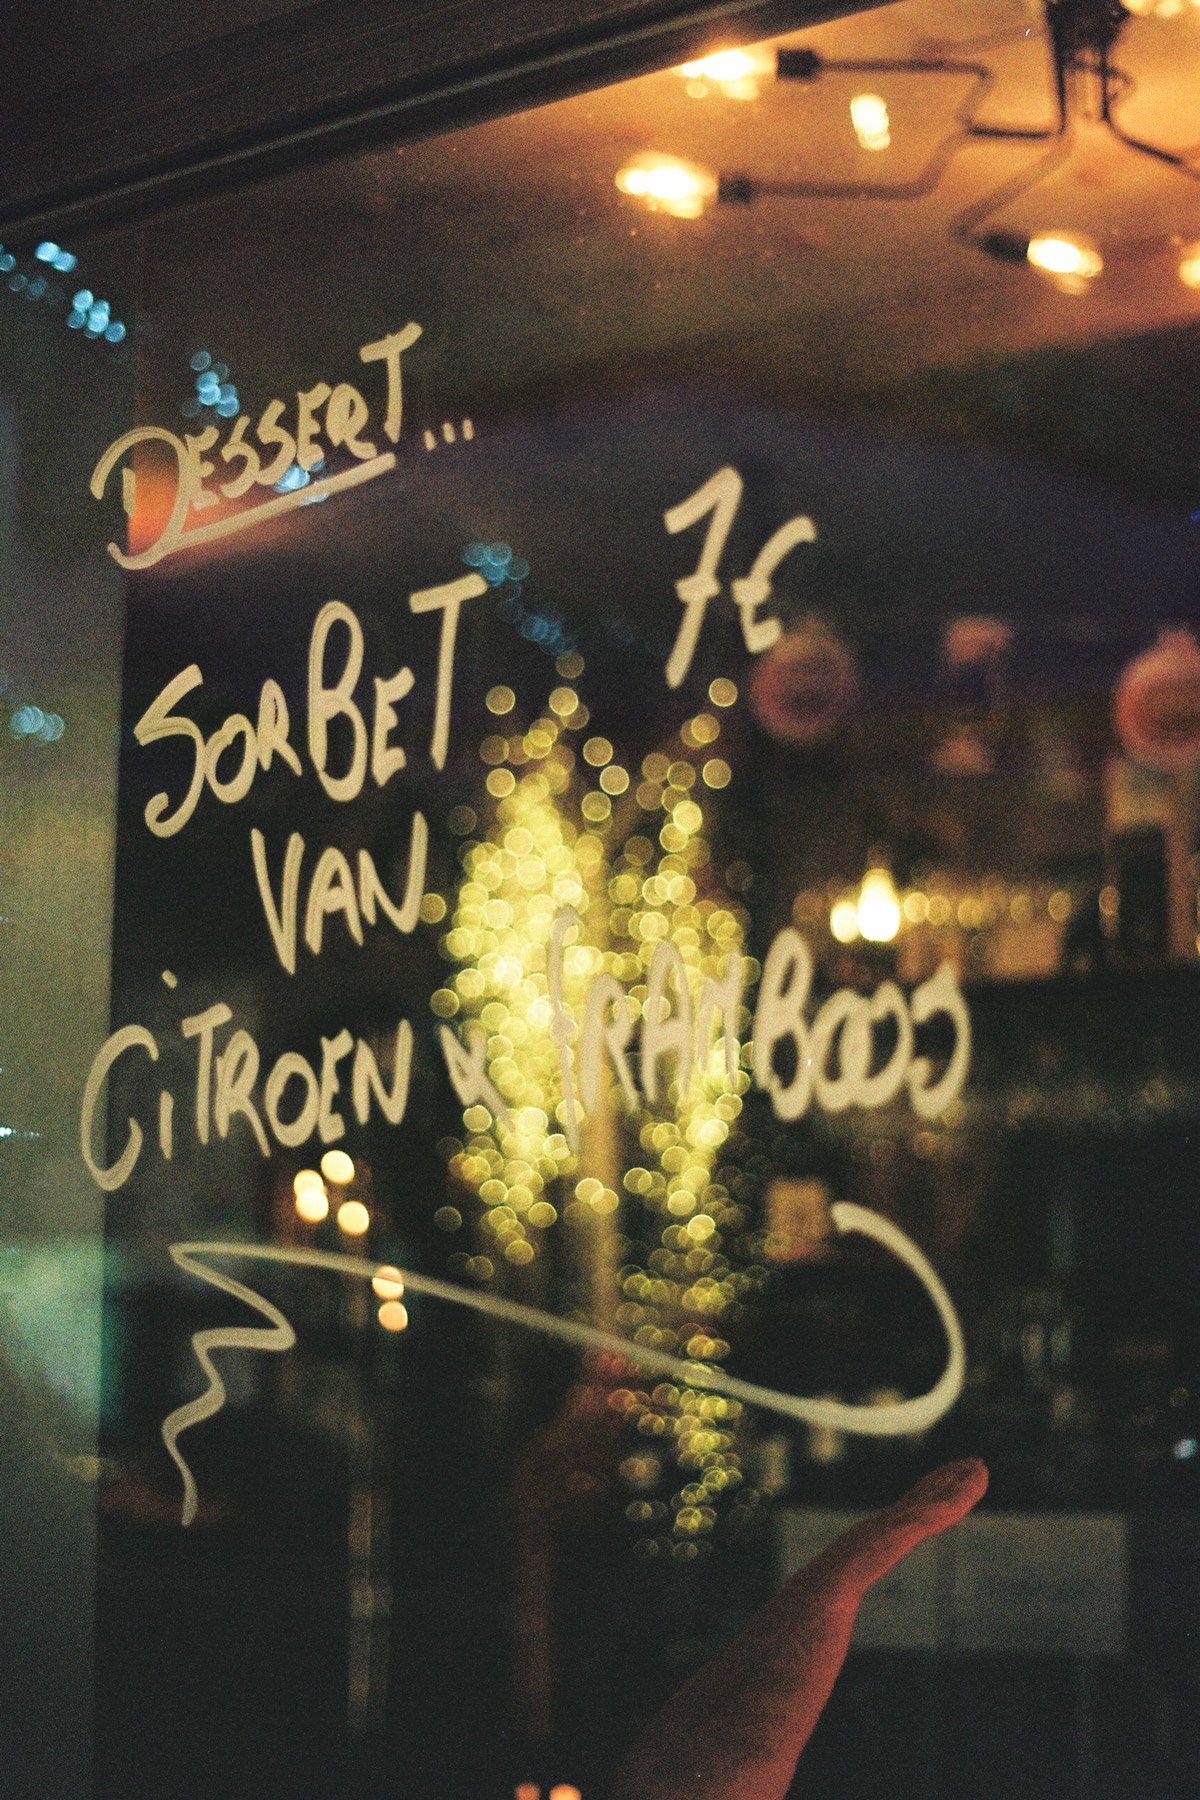 DESSERT...
7€
SORBET
VAN
CiTROEN & FRAMBOOS